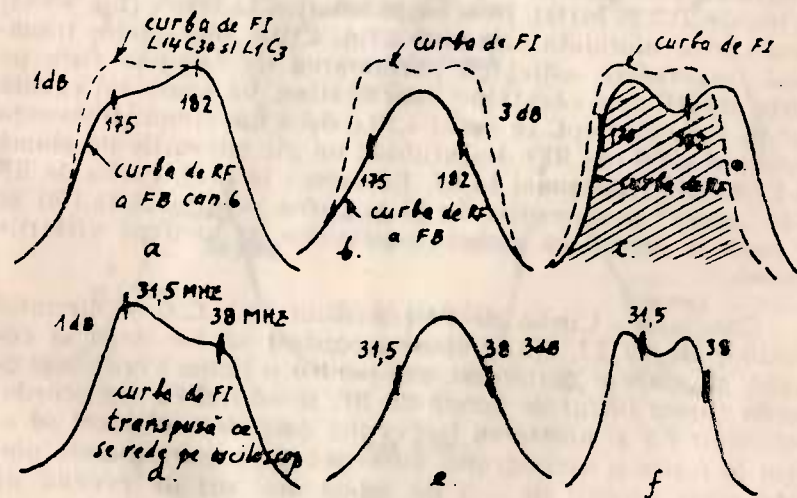 curba de FI
L14C30 si L1C3
1dB
175
182
curba de RF
a FB can.6
a
curba de FI
3dB
175
182
curba de RF
a FB
b.
curba de FI
curba de RF
c.
31,5 MHZ
1dB
38 MHZ
curba de FI
transpusă ce
se rede pe osciloscop
d.
31,5
38
3dB
e.
31,5
38
f